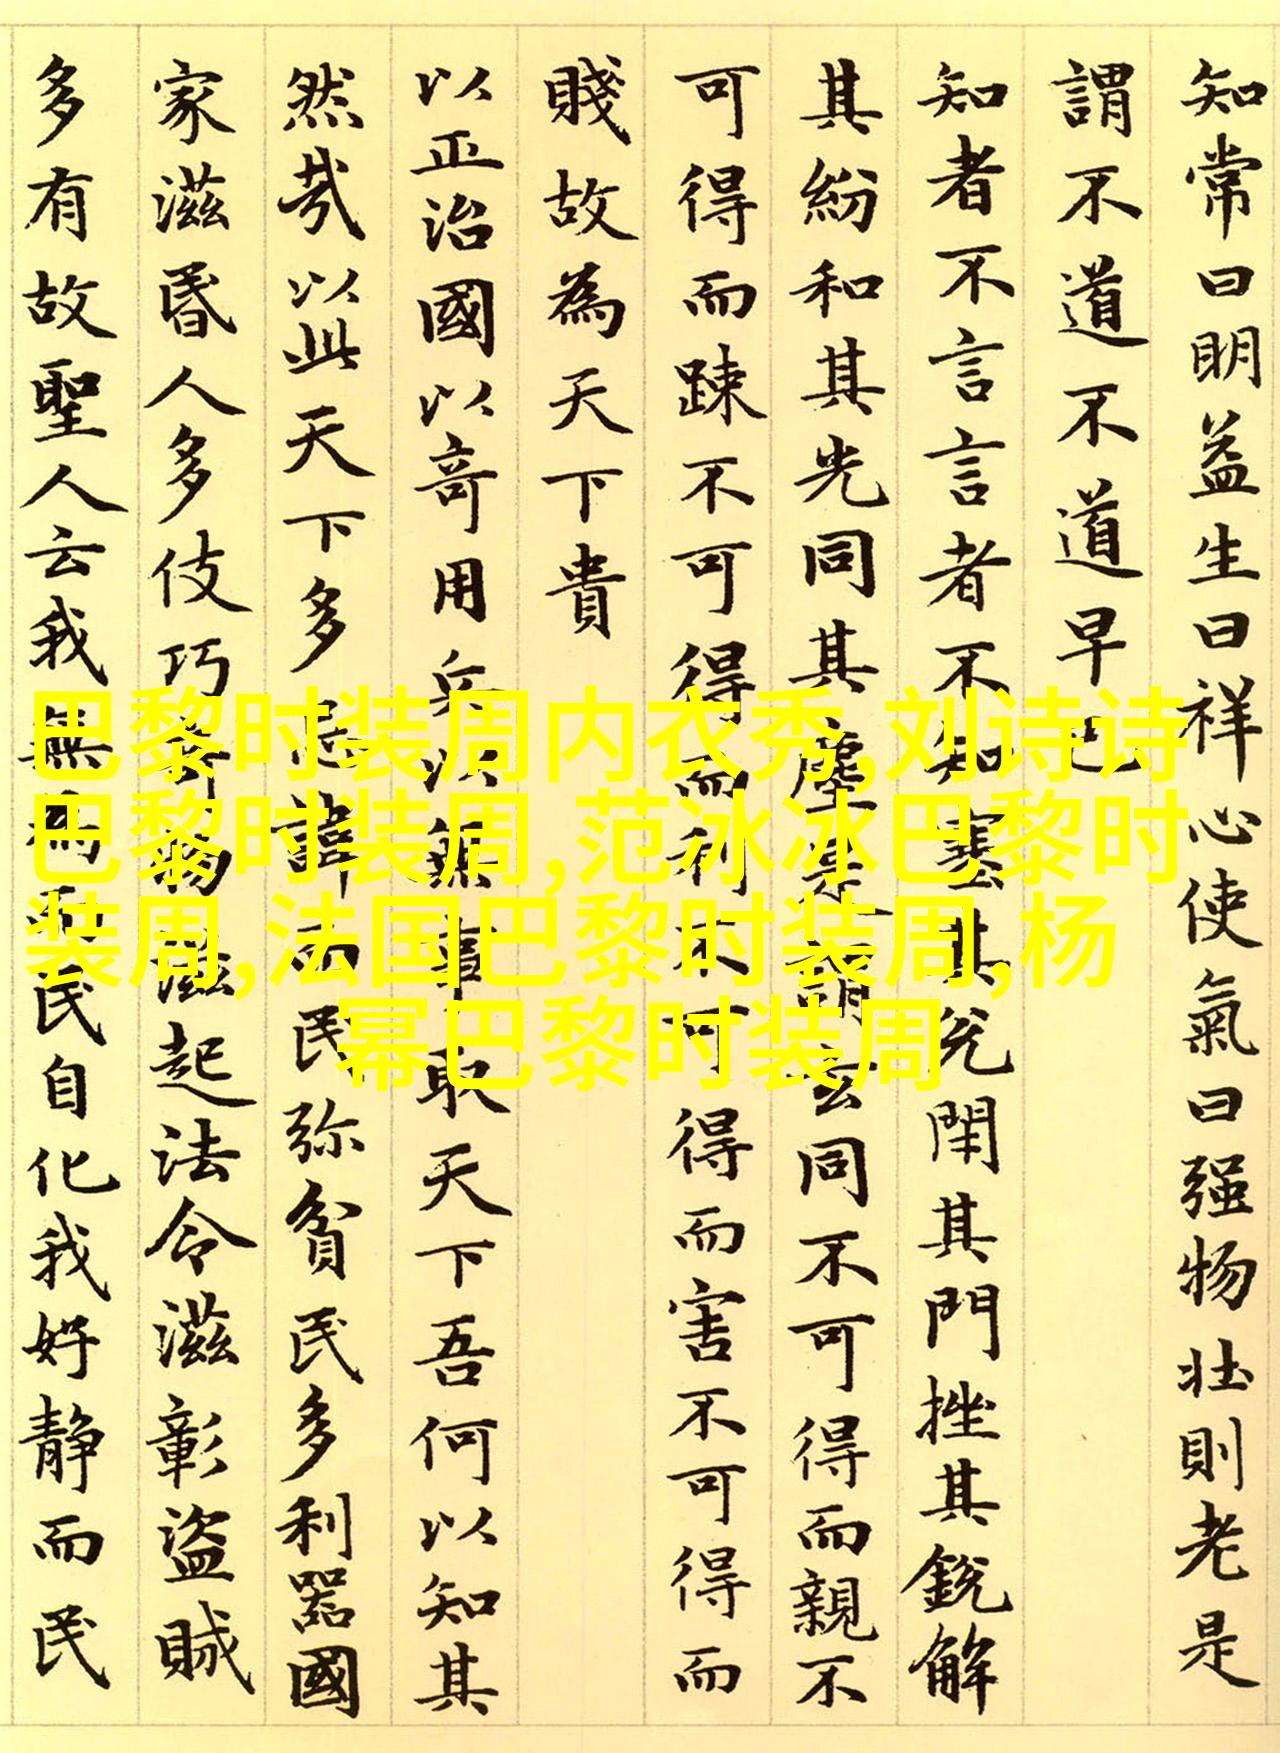 知常曰明益生曰祥心使氣曰强物壯則老是
謂不道不道早已
知者不言言者不知塞其兊閇其門挫其銳解
其紛和其光同其塵是謂玄同不可得而親不
可得而踈不可得而利不可得而害不可得而
賤故為天下貴
以正治國以奇用兵以無事取天下吾何以知其
然哉以此天下多忌諱而民弥貧民多利器國
家滋昬人多伎巧奇物滋起法令滋彰盗賊
多有故聖人云我無為而民自化我好静而民
巴黎时装周内衣秀,刘诗诗
巴黎时装周,范冰冰巴黎时
装周,法国巴黎时装周,杨
幂巴黎时装周